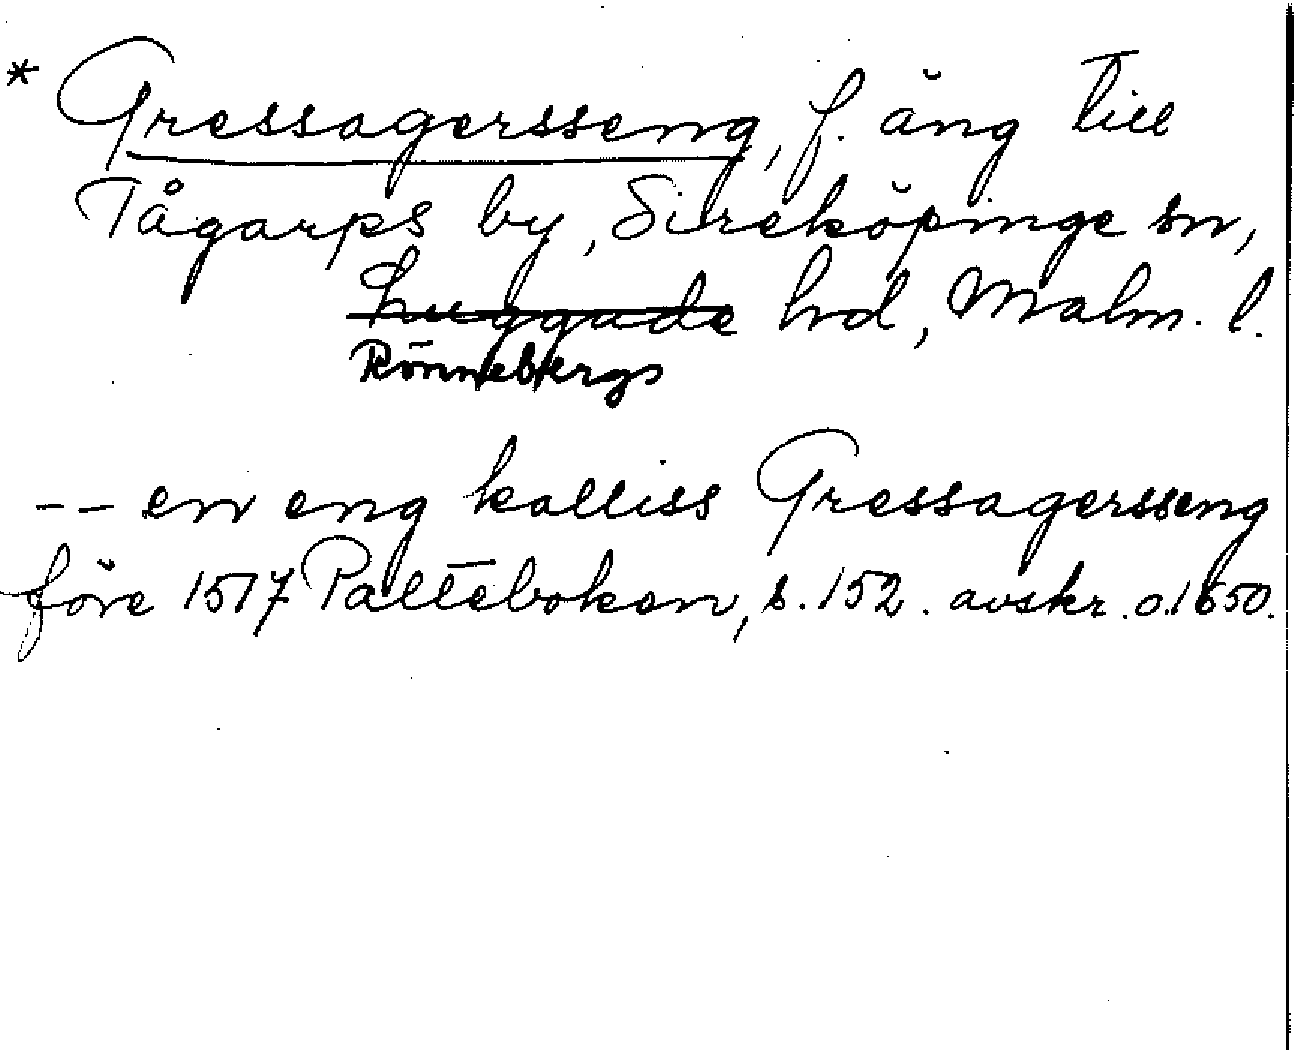 * Gressagersseng, f. äng till
Tågarps by, Sireköpinge sn,
Luggude hd, Malm. l.
Rönnebergs
-- en eng kalliss Gressagersseng
före 1517 Palteboken, s. 152. avskr. o. 1650.